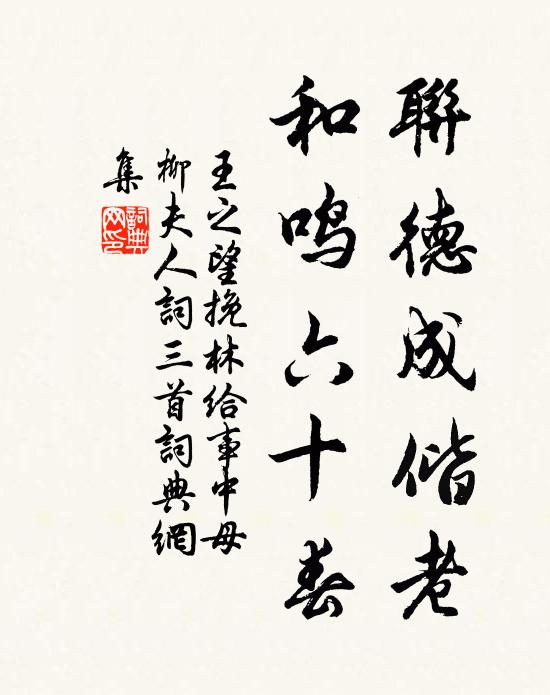 聯德成偕老
和鳴六十春
王之望挽林給事中母
柳夫人詞三首詞典網
集
詞典網印